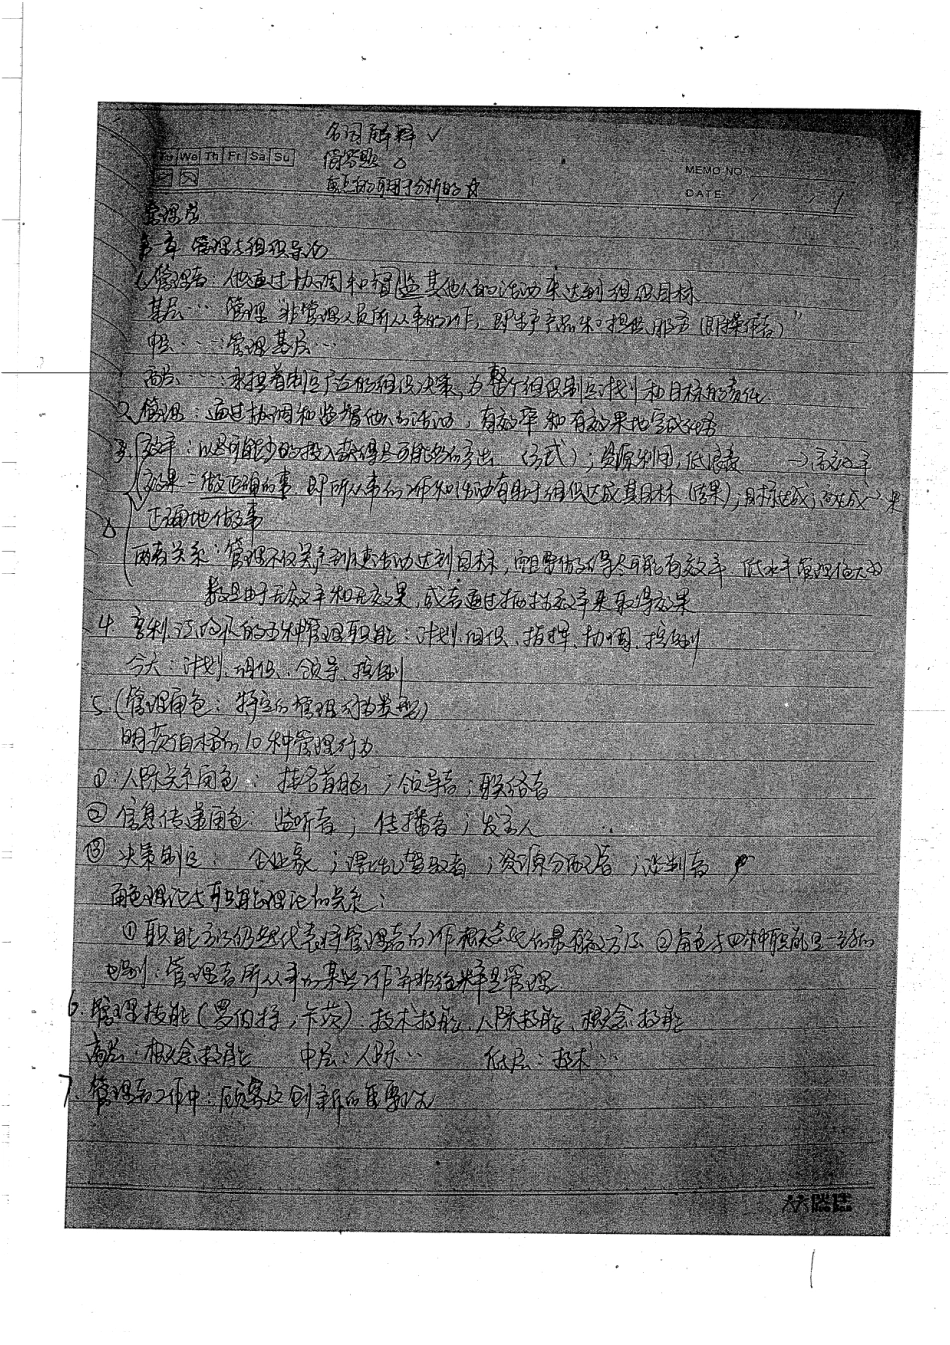 名词解释 ✓
简答题 △
重点的可用于分析的 ☆
Tu We Th Fr Sa Su
MEMO NO.
DATE
管理学
第一章 管理与组织导论
1. 管理者：他通过协调和监其他人的活动来达到组织目标
基层… 管理非管理人员所从事的工作，即生产产品和提供服务（即操作者）
中层……管理基层…
高层……承担着制定广泛的组织决策，为整个组织制定计划和目标的责任
2. 管理：通过协调和监督他人的活动，有效率和有效果地完成任务
3. 效率：以尽可能少的投入获得尽可能多的产出（方式）；资源利用，低浪费 → 高效率
效果：做正确的事，即所从事的工作和活动有助于组织达成其目标（结果）；目标达成，高达成 → 果
正确地做事
△ 两者关系：管理不仅关系到使活动达到目标，而且要做得尽可能有效率，低水平管理绝大多
数是由于无效率和无效果，或者通过牺牲效率来取得效果
4. 亨利·法约尔的五种管理职能：计划、组织、指挥、协调、控制
今天：计划、组织、领导、控制
5. （管理角色：特定的管理行为类型）
明茨伯格的10种管理行为
① 人际关系角色：挂名首脑；领导者；联络者
② 信息传递角色：监听者；传播者；发言人
③ 决策制定：企业家；混乱驾驭者；资源分配者；谈判者
角色理论与职能理论的关系：
① 职能方法仍然代表将管理者的工作概念化的最有效方法 ② 角色与四种职能是一致的
区别：管理者所从事的某些工作并非纯粹是管理
6. 管理技能（罗伯特·卡茨）：技术技能、人际技能、概念技能
高层：概念技能 中层：人际… 低层：技术…
7. 管理者工作中：顾客及创新的重要性
1